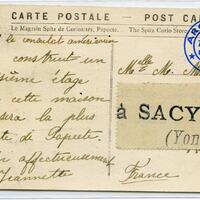 CARTE POSTALE    POST CA
Le Magasin Spitz de Curiosités, Papeete.    The Spitz Curio Store
le consulat américain
construit un
sième étage
cette maison
sera la plus
te de Papeete
affectueusement
Jeannette
Mlle M.
à SACY
(Yon
France